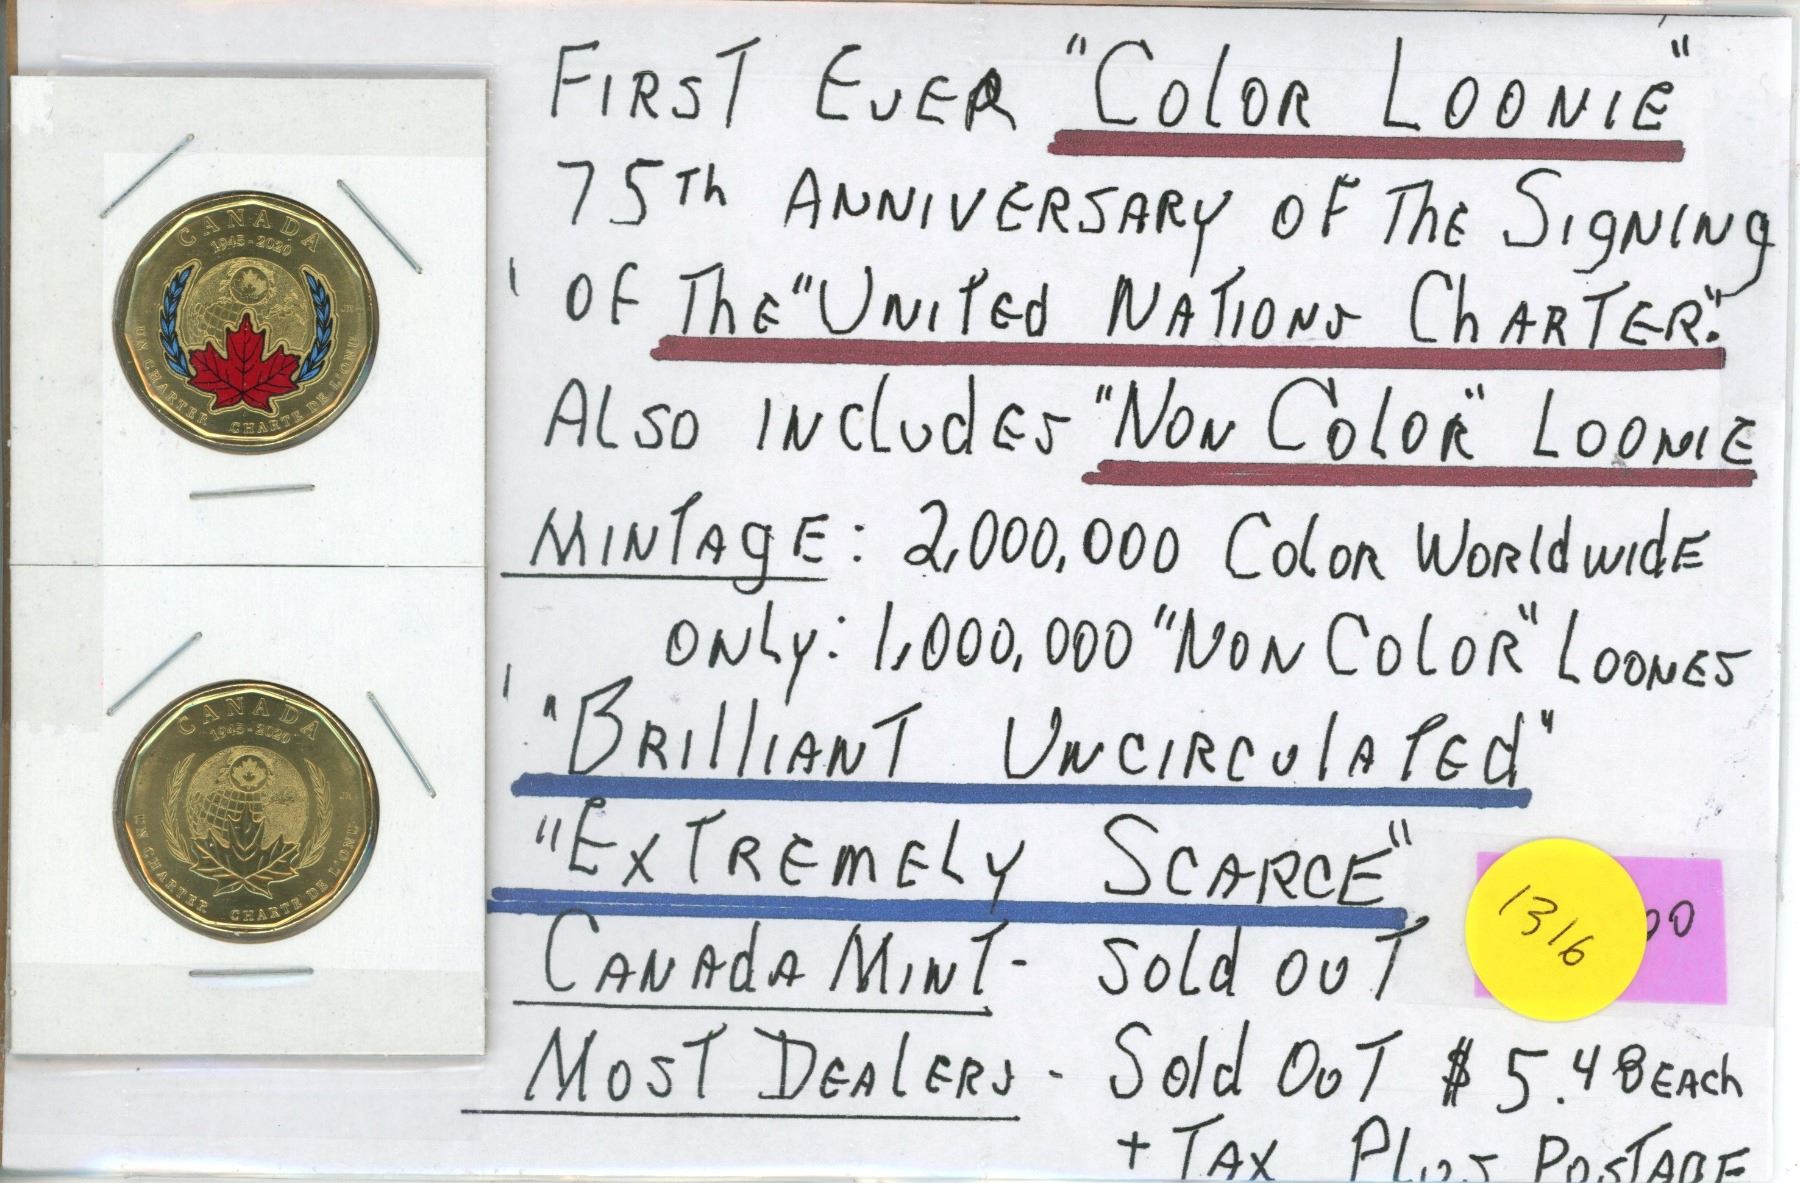 CANADA
1945-2020
UN CHARTER CHARTE DE L'ONU
JR
CANADA
1945-2020
UN CHARTER CHARTE DE L'ONU
JR
FIRST EVER "COLOR LOONIE"
75TH ANNIVERSARY OF THE SIGNING
OF THE "UNITED NATIONS CHARTER."
ALSO INCLUDES "NON COLOR" LOONIE
MINTAGE: 2,000,000 COLOR WORLDWIDE
ONLY: 1,000,000 "NON COLOR" LOONES
"BRILLIANT UNCIRCULATED"
"EXTREMELY SCARCE"
1316
00
CANADA MINT - SOLD OUT
MOST DEALERS - SOLD OUT $5.48 EACH
+ TAX PLUS POSTAGE